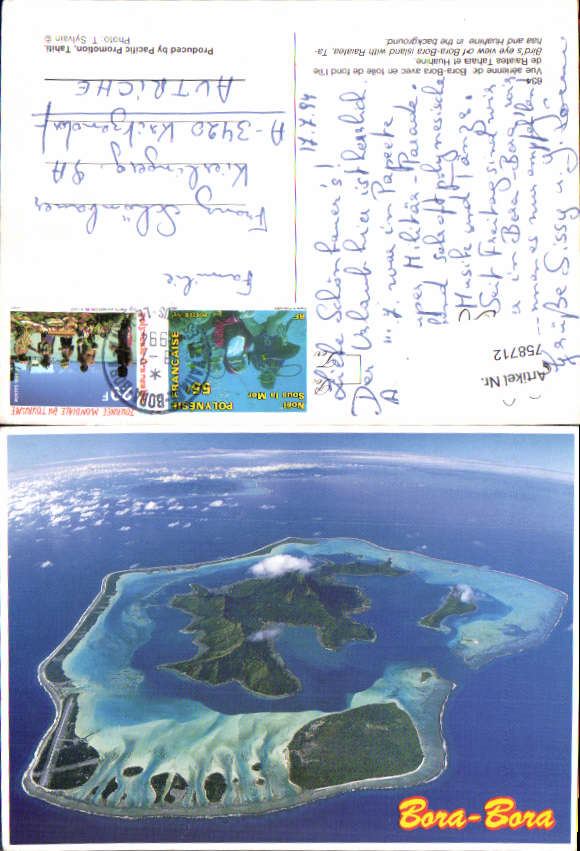 634
Vue aérienne de Bora-Bora avec en toile de fond l'île
de Raiatea Tahaa et Huahine
Bird's eye view of Bora-Bora island with Raiatea, Ta-
haa and Huahine in the background.
17.7.94
Liebe Schönbauer's!
Der Urlaub hier ist herrlich.
A 7. war in Papeete
Militär-Parade
und sehr oft polynesische
Musik und Tänze.
Seit Freitag sind wir
in Bora-Bora
man es nur empfehlen
Grüße Sissy u.
Artikel Nr.
758712
Familie
Franz Schönbauer
Kierlingerg. 9A
A-3420 Kritzendorf
AUTRICHE
Produced by Pacific Promotion, Tahiti.
Photo: T. Sylvain ©
Noël
Sous la Mer
POLYNÉSIE
FRANÇAISE
55F
RF
TOURNÉE MONDIALE DU TOURISME
BORA-BORA
Bora-Bora